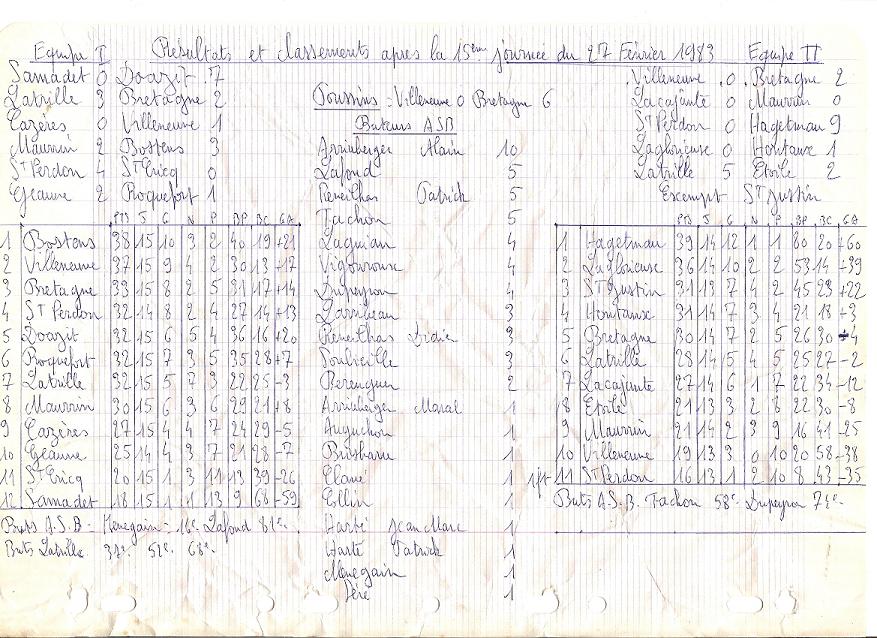 Equipe I Résultats et classements après la 15ème journée du 27 Février 1983 Equipe II
Samadet 0 Doazit 7
Latrille 3 Bretagne 2
Cazères 0 Villeneuve 1
Maurrin 2 Bostens 3
St Perdon 4 St Ericq 0
Geaune 2 Roquefort 1
Poussins : Villeneuve 0 Bretagne 6
Buteurs ASB
Arrimberger Alain 10
Lafond 5
Reneilhas Patrick 5
Tachon 5
Laguian 4
Vigouroux 4
Dupeyron 4
Larribeau 3
Reneilhas Didier 3
Soubeille 3
Berenguer 2
Arrimberger Marcel 1
Auguchon 1
Brisbarre 1
Clavé 1
Collin 1
Harté Jean Marc 1
Harté Patrick 1
Menegain 1
Séré 1
Villeneuve 0 Bretagne 2
Lacajunte 0 Maurrin 0
St Perdon 0 Hagetmau 9
Laglorieuse 0 Hontanx 1
Latrille 5 Etoile 2
Exempt St Justin
PTS J G N P BP BC GA
1 Bostens 38 15 10 3 2 40 19 +21
2 Villeneuve 37 15 9 4 2 30 13 +17
3 Bretagne 33 15 8 2 5 31 17 +14
4 St Perdon 32 14 8 2 4 27 14 +13
5 Doazit 32 15 6 5 4 36 16 +20
6 Roquefort 32 15 7 3 5 35 28 +7
7 Latrille 32 15 5 7 3 22 25 -3
8 Maurrin 30 15 6 3 6 29 21 +8
9 Cazères 27 15 4 4 7 24 29 -5
10 Geaune 25 14 4 3 7 21 28 -7
11 St Ericq 20 15 1 3 11 13 39 -26
12 Samadet 18 15 1 1 13 9 68 -59
Buts A.S.B - Menegain - 16e Lafond 81e.
Buts Latrille 37e. 52e. 68e.
PTS J G N P BP BC GA
1 Hagetmau 39 14 12 1 1 80 20 +60
2 Laglorieuse 36 14 10 2 2 53 14 +39
3 St Justin 31 13 7 4 2 45 23 +22
4 Hontanx 31 14 7 3 4 21 18 +3
5 Bretagne 30 14 7 2 5 26 30 -4
6 Latrille 28 14 5 4 5 25 27 -2
7 Lacajunte 27 14 6 1 7 22 34 -12
8 Etoile 21 13 3 2 8 22 30 -8
9 Maurrin 21 14 2 3 9 16 41 -25
10 Villeneuve 19 13 3 0 10 20 58 -38
11 St Perdon 16 13 1 2 10 8 43 -35
Buts A.S.B. Tachon 58e. Dupeyron 72e.